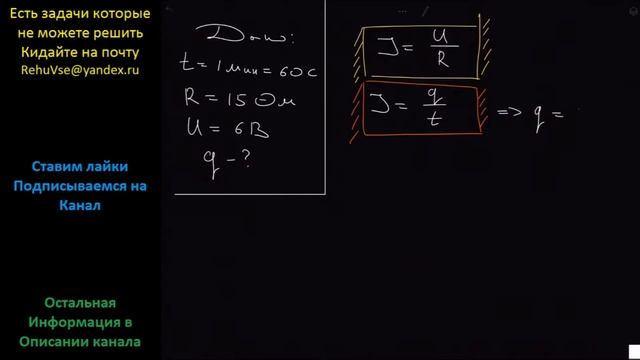 Есть задачи которые
не можете решить
Кидайте на почту
RehuVse@yandex.ru
Ставим лайки
Подписываемся на
Канал
Остальная
Информация в
Описании канала
Дано:
t = 1 мин = 60 с
R = 15 Ом
U = 6 В
q - ?
J = U / R
J = q / t => q =